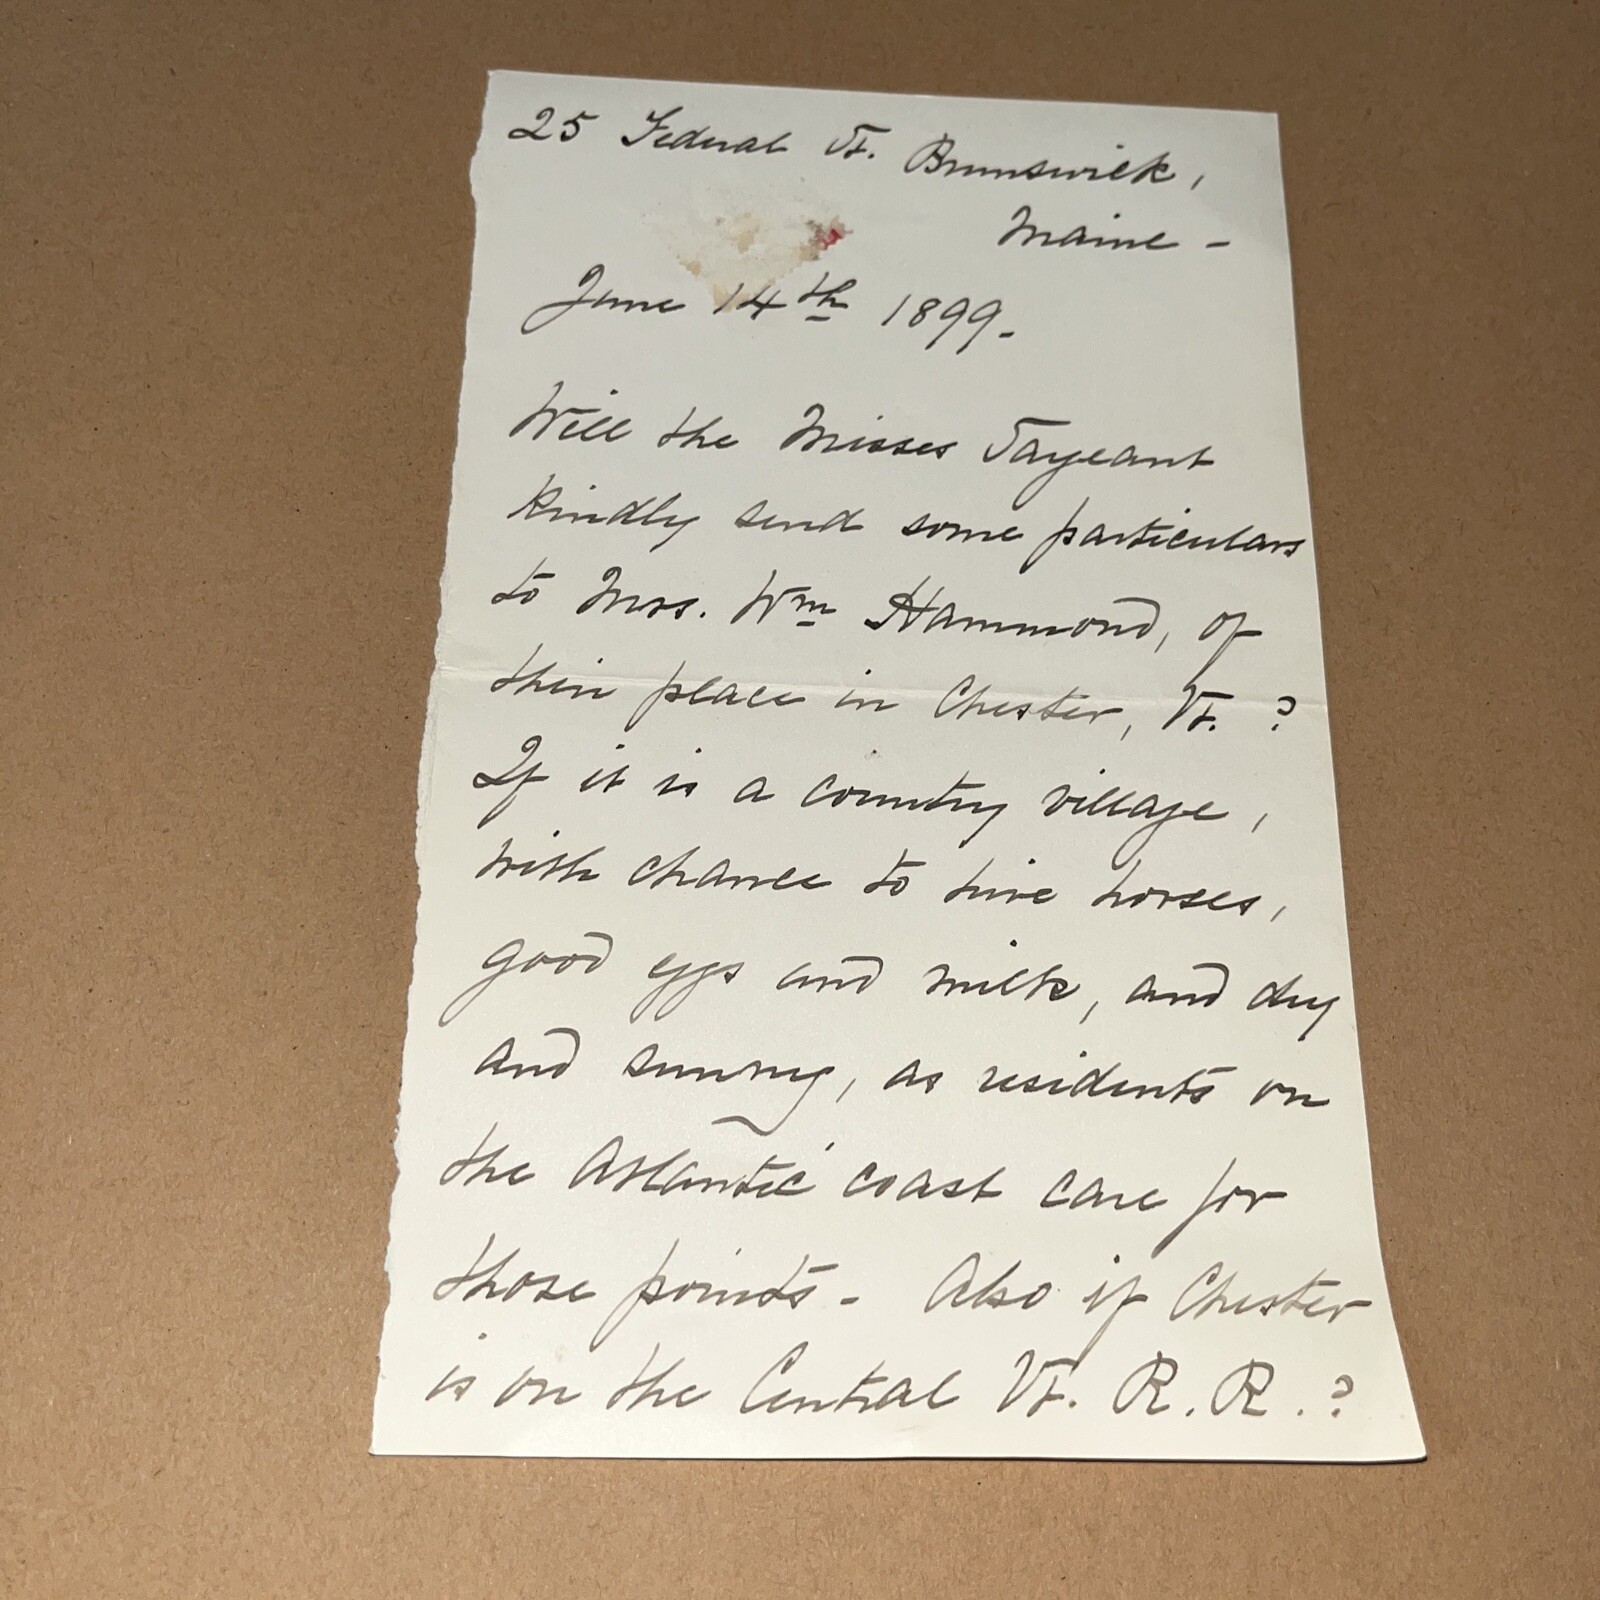 25 Federal St. Brunswick,
Maine -
June 14th 1899.
Will the Misses Sargeant
kindly send some particulars
to Mrs. Wm Hammond, of
their place in Chester, Vt. ?
If it is a country village,
with chance to hire horses,
good eggs and milk, and dry
and sunny, as residents on
the Atlantic coast care for
those points - Also if Chester
is on the Central Vt. R. R. ?